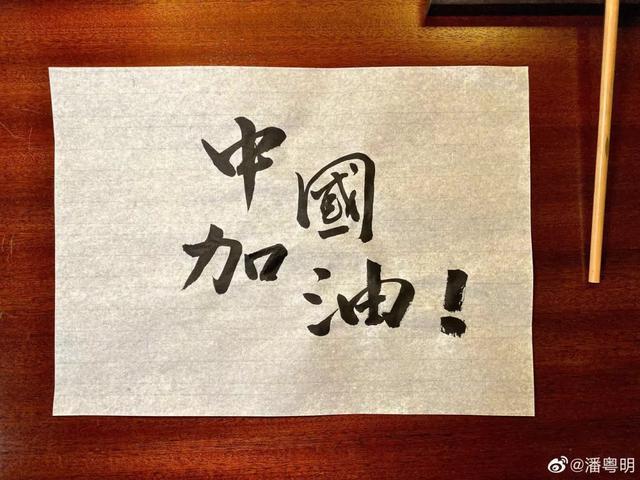 中國
加油！
@潘粤明